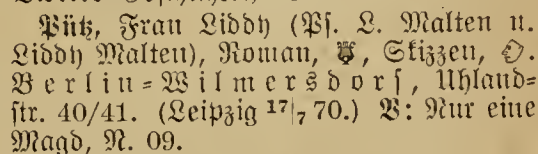 Pütz, Frau Liddy (Ps. L. Malten u.
Liddy Malten), Roman, Skizzen,
Berlin-Wilmersdorf, Uhland=
str. 40/41. (Leipzig 17/7 70.) V: Nur eine
Magd, R. 09.